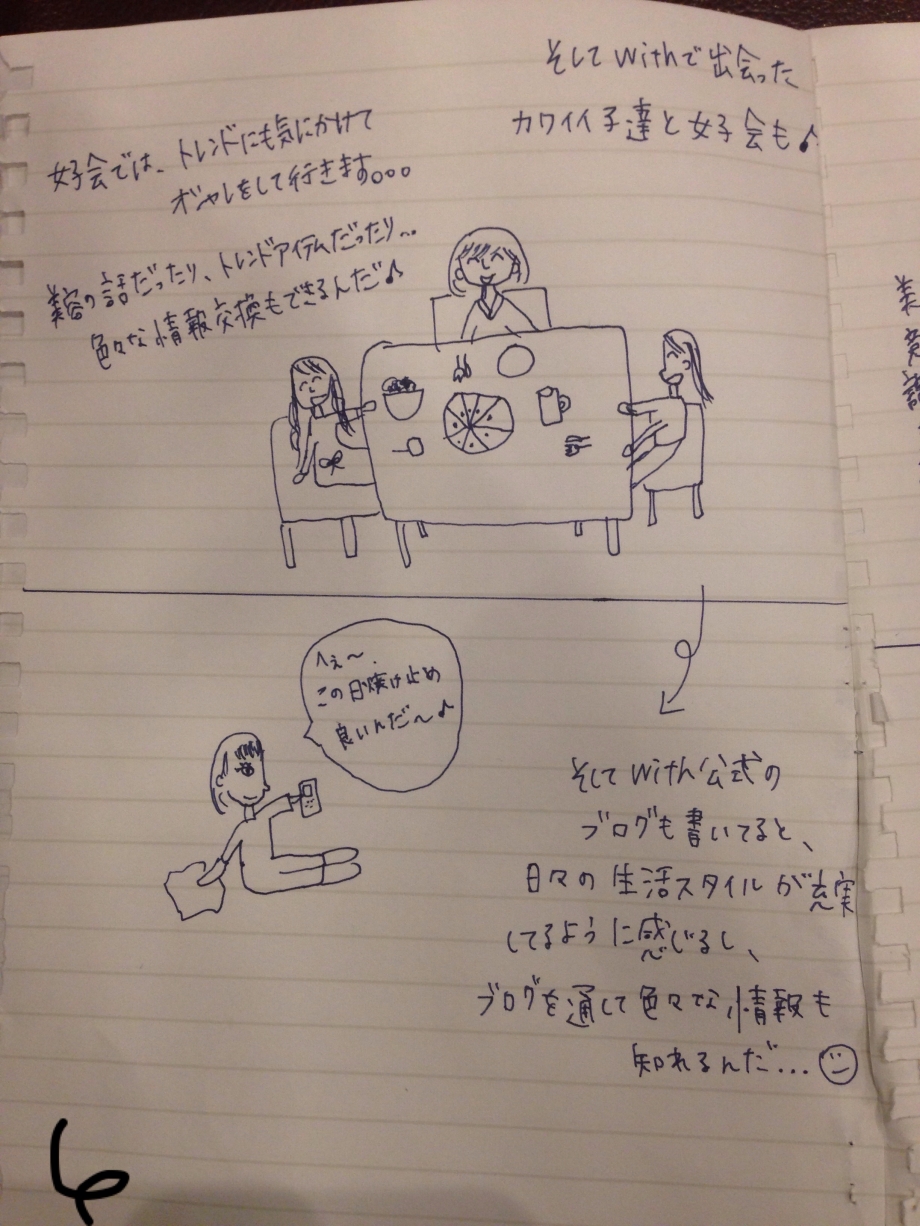 そしてwithで出会った
カワイイ子達と女子会も♪
女子会では、トレンドにも気にかけて
オシャレをして行きます。。。
美容の話だったり、トレンドアイテムだったり…
色々な情報交換もできるんだ♪
へぇ〜、
この日焼け止め
良いんだ〜♪
そしてwith公式の
ブログも書いてると、
日々の生活スタイルが充実
してるように感じるし、
ブログを通して色々な情報も
知れるんだ…
6